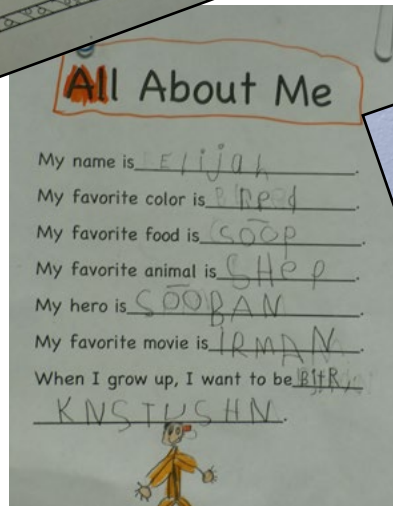 All About Me
My name is Elijah.
My favorite color is Red.
My favorite food is SOOP.
My favorite animal is SHEP.
My hero is SOOBAN.
My favorite movie is IRMAN.
When I grow up, I want to be BitR
KNSTUSHN.